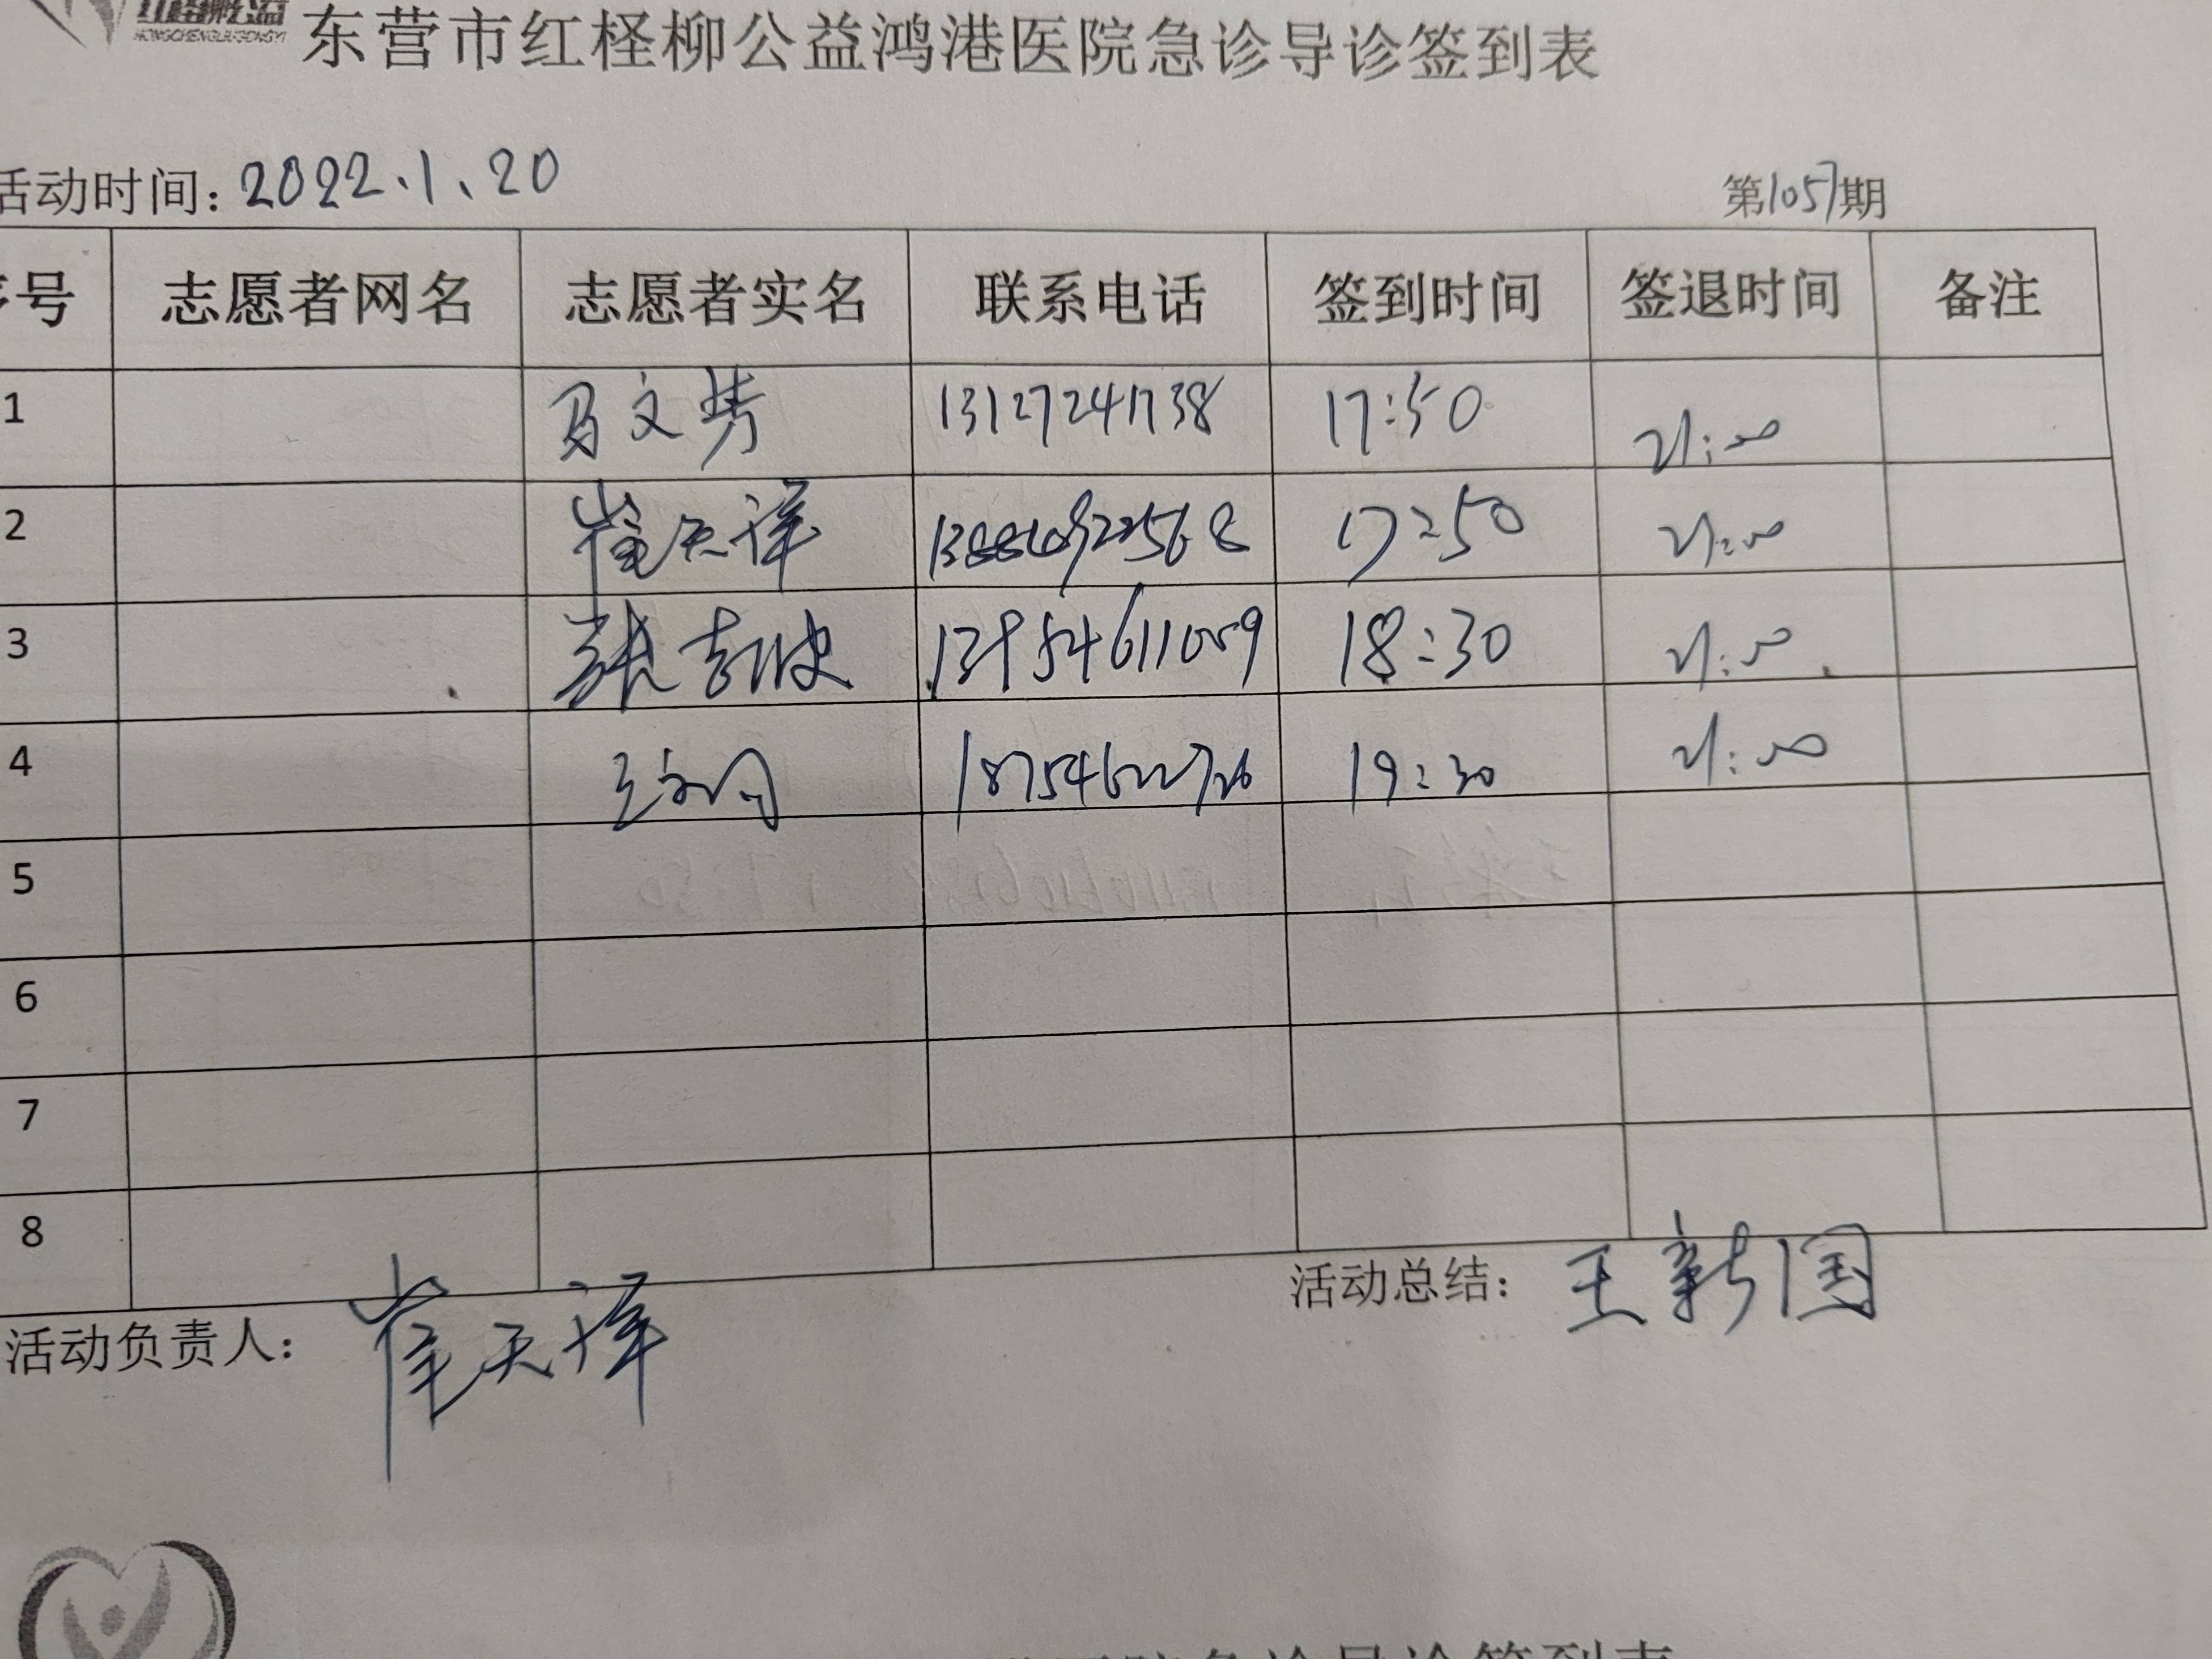 红柽柳公益
HONGCHENGLIUGONGYI
东营市红柽柳公益鸿港医院急诊导诊签到表
活动时间：2022.1.20
第1057期
序号 志愿者网名 志愿者实名 联系电话 签到时间 签退时间 备注
1 马文芳 13127241738 17:50 21:00
2 崔天祥 17:50 21:00
3 13954611059 18:30 21:00
4 19:30 21:00
5
6
7
8
活动负责人：崔天祥
活动总结：王新国
医院急诊导诊签到表